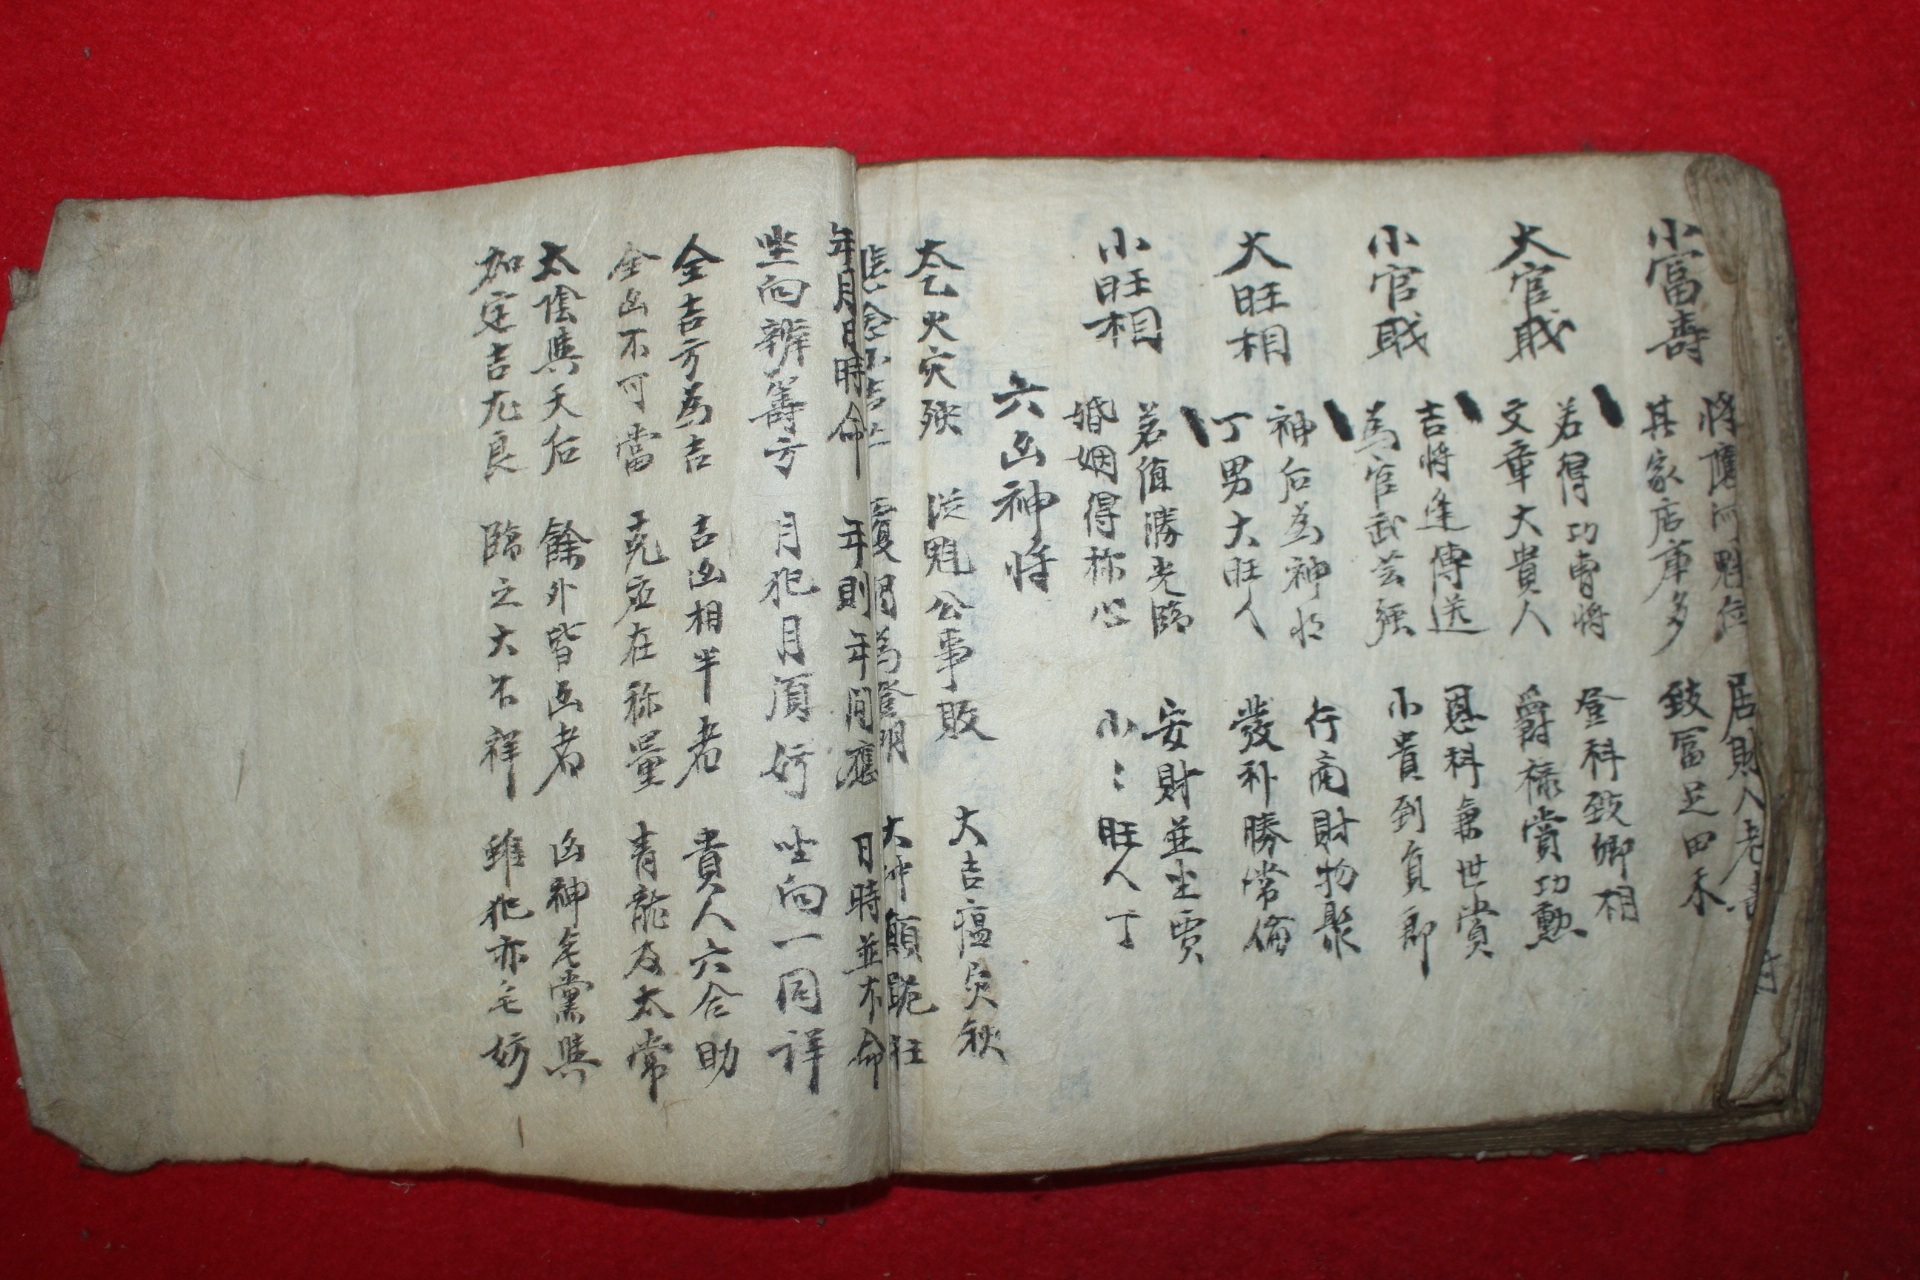 小富壽
將應河魁位 居財人
其家店庫多 致富足田禾
大官戝
若得功曹將 登科致卿相
文章大貴人 爵祿賞功勲
小官戝
吉將逢傳送 恩科兼世賞
為官武芸強 小貴到負郎
大旺相
神后為神將 行商財物聚
丁男大旺人 發朴勝常倫
小旺相
若值勝光臨 安財並坐賈
婚姻得称心 小〻旺人丁
六凶神将
太乙火灾殃 従魁公事敗 大吉瘟灾殃
為登明 大冲顛跪狂
年月日時命 年則年間應 日時並不命
坐向辨籌方 月犯月須妨 坐向一同詳
全吉方為吉 吉凶相半者 貴人六合助
全凶不可當 克应在称量 青龍及太常
太陰與天后 餘外皆凶者 凶神毛黨與
加定吉尤良 臨之大不祥 雖犯亦毛妨